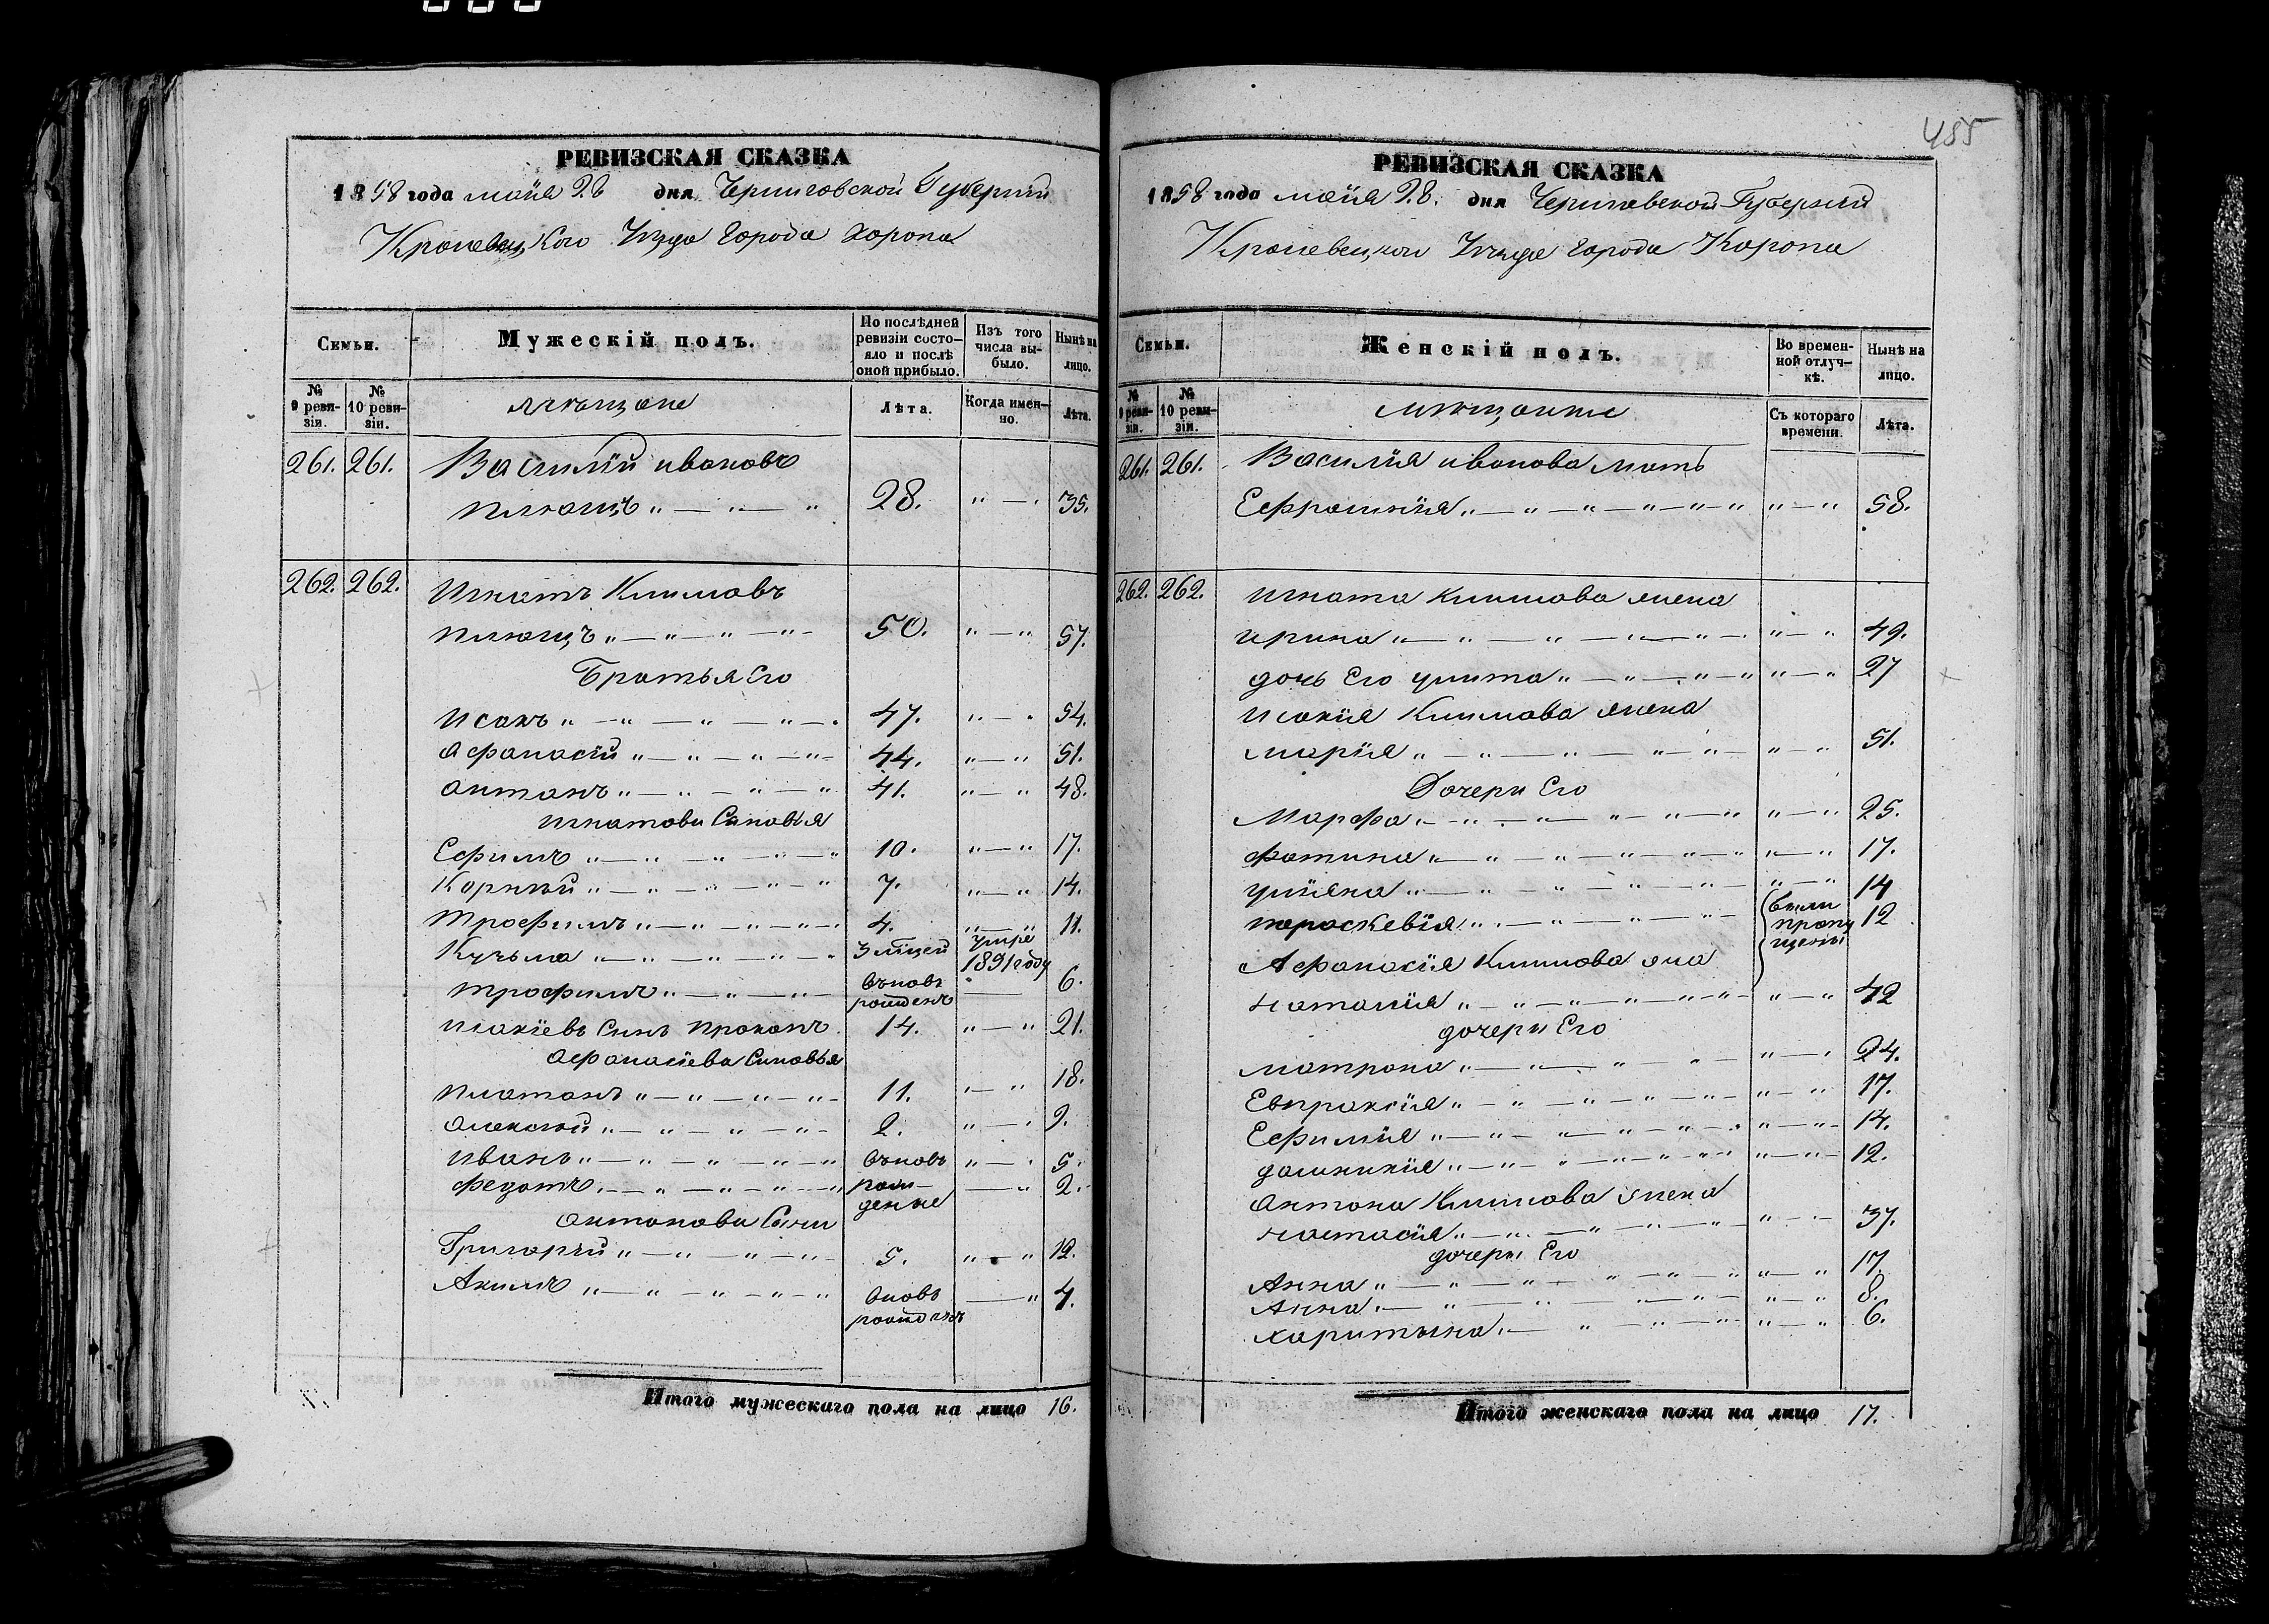 455
РЕВИЗСКАЯ СКАЗКА
1858 года маія 28 дня Черниговской Губерніи
Кролевецкого Уѣзда Города Коропа
Семьи.
Мужескій полъ.
По послѣдней ревизіи состояло и послѣ оной прибыло.
Изъ того числа выбыло.
Нынѣ на лицо.
№ 9 ревизіи.
№ 10 ревизіи.
мѣщане
Лѣта.
Когда именно.
Лѣта.
261. 261. Василій ивановъ
плющъ 28. 35.
262. 262. Игнатъ Климовъ
плющъ 50. 57.
Братья Его
Исакъ 47. 54.
Афанасій 44. 51.
Антонъ 41. 48.
Игнатови Синовья
Ефимъ 10. 17.
Корнѣй 7. 14.
Трофимъ 4. 11.
Кузьма 3 мѣцей умре 1851 году
трофимъ вьновь рожденъ 6.
исакіевъ Синъ прокопъ 14. 21.
Афанасіева Синовья
платонъ 11. 18.
алексѣй 2. 9.
иванъ вьновь 5.
федотъ рожденые 2.
Антонови Сыни
Григорій 5. 12.
Акимъ вновь рожденъ 4.
Итого мужескаго пола на лицо 16.
РЕВИЗСКАЯ СКАЗКА
1858 года маія 28. дня Черниговской Губерніи
Кролевецкого Уѣзда города Коропа
Семьи.
Женскій полъ.
Во временной отлучкѣ.
Нынѣ на лицо.
№ 9 ревизіи.
№ 10 ревизіи.
мѣщанки
Съ котораго времени.
Лѣта.
261. 261. Василія иванова мать
Ефросинія 58.
262. 262. игната климова жена
ирина 49.
дочь Его улита 27
исакія Климова жена
марія 51.
Дочери Его
Марфа 25.
фотина 17.
уліяна 14
пораскевія были пропущены 12
Афанасія Климова жена
наталія 42
дочери Его
матрона 24.
Евпраксія 17.
Ефимія 14.
домникія 12.
Антона Климова жена
настасія 37.
дочери Его
Анна 17.
Анна 8.
харитына 6.
Итого женскаго пола на лицо 17.